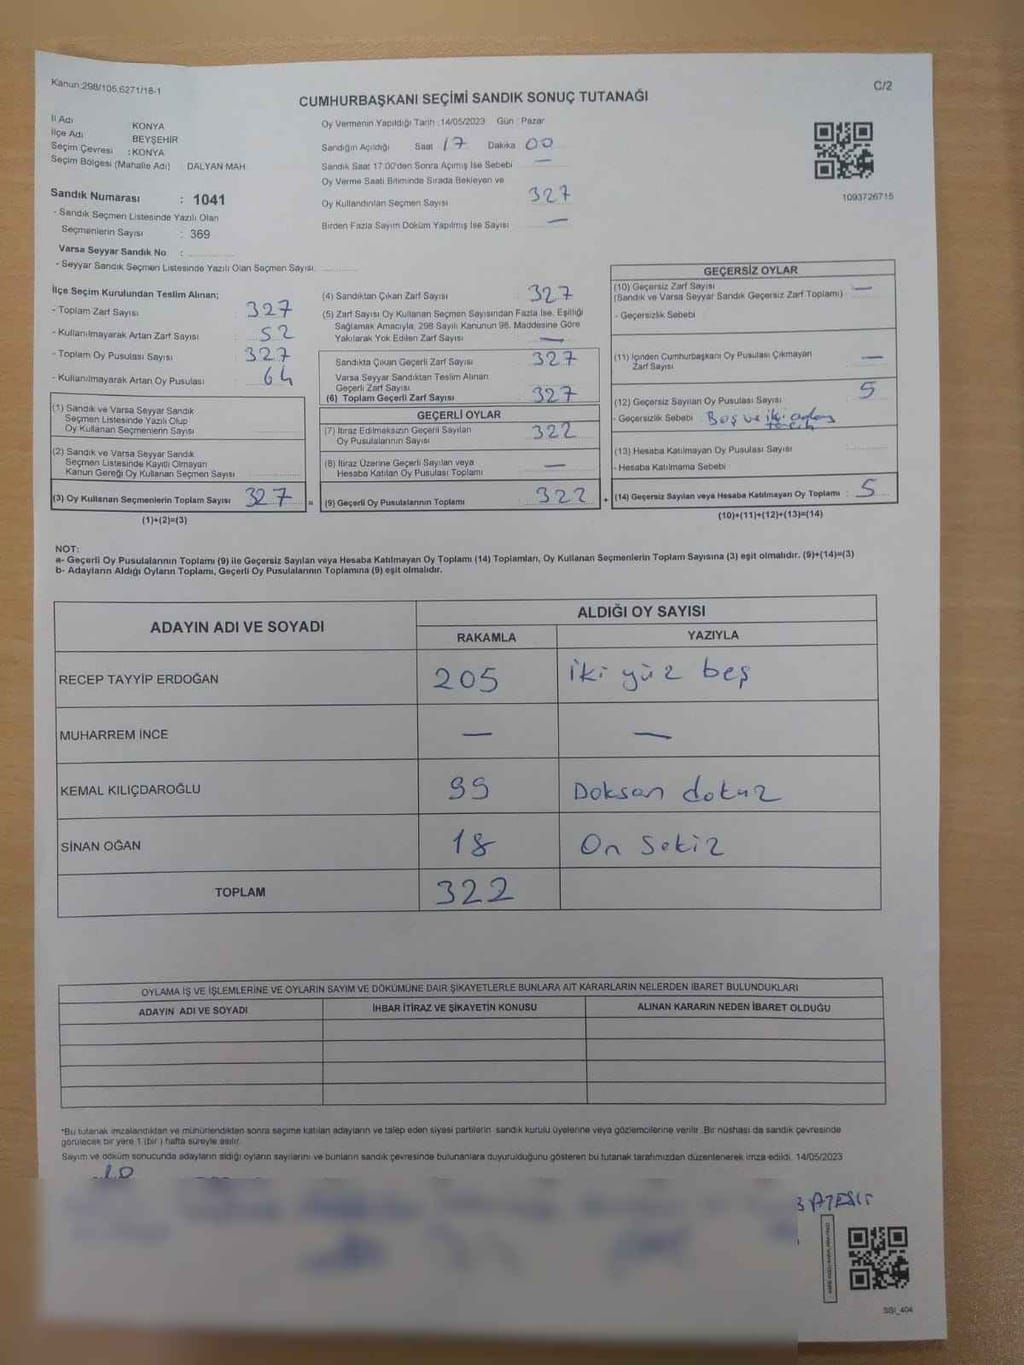 Kanun:298/105,6271/18-1
C/2
CUMHURBAŞKANI SEÇİMİ SANDIK SONUÇ TUTANAĞI
İl Adı KONYA
İlçe Adı BEYŞEHİR
Seçim Çevresi : KONYA
Seçim Bölgesi (Mahalle Adı) DALYAN MAH
Sandık Numarası : 1041
- Sandık Seçmen Listesinde Yazılı Olan
Seçmenlerin Sayısı : 369
Varsa Seyyar Sandık No :
- Seyyar Sandık Seçmen Listesinde Yazılı Olan Seçmen Sayısı:
Oy Vermenin Yapıldığı Tarih :14/05/2023 Gün : Pazar
Sandığın Açıldığı Saat 17 Dakika 00
Sandık Saat 17.00'den Sonra Açılmış İse Sebebi —
Oy Verme Saati Bitiminde Sırada Bekleyen ve
Oy Kullandırılan Seçmen Sayısı 327
Birden Fazla Sayım Döküm Yapılmış İse Sayısı —
1093726715
İlçe Seçim Kurulundan Teslim Alınan;
- Toplam Zarf Sayısı : 327
- Kullanılmayarak Artan Zarf Sayısı : 52
- Toplam Oy Pusulası Sayısı : 327
- Kullanılmayarak Artan Oy Pusulası : 64
(1) Sandık ve Varsa Seyyar Sandık
Seçmen Listesinde Yazılı Olup
Oy Kullanan Seçmenlerin Sayısı
(2) Sandık ve Varsa Seyyar Sandık
Seçmen Listesinde Kayıtlı Olmayan
Kanun Gereği Oy Kullanan Seçmen Sayısı
(3) Oy Kullanan Seçmenlerin Toplam Sayısı 327 =
(1)+(2)=(3)
(4) Sandıktan Çıkan Zarf Sayısı : 327
(5) Zarf Sayısı Oy Kullanan Seçmen Sayısından Fazla İse, Eşitliği
Sağlamak Amacıyla, 298 Sayılı Kanunun 98. Maddesine Göre
Yakılarak Yok Edilen Zarf Sayısı —
Sandıkta Çıkan Geçerli Zarf Sayısı 327
Varsa Seyyar Sandıktan Teslim Alınan
Geçerli Zarf Sayısı
(6) Toplam Geçerli Zarf Sayısı 327
GEÇERLİ OYLAR
(7) İtiraz Edilmeksizin Geçerli Sayılan
Oy Pusulalarının Sayısı 322
(8) İtiraz Üzerine Geçerli Sayılan veya
Hesaba Katılan Oy Pusulası Toplamı —
(9) Geçerli Oy Pusulalarının Toplamı 322 +
GEÇERSİZ OYLAR
(10) Geçersiz Zarf Sayısı
(Sandık ve Varsa Seyyar Sandık Geçersiz Zarf Toplamı) —
- Geçersizlik Sebebi
(11) İçinden Cumhurbaşkanı Oy Pusulası Çıkmayan
Zarf Sayısı —
(12) Geçersiz Sayılan Oy Pusulası Sayısı 5
- Geçersizlik Sebebi Boş ve iki
(13) Hesaba Katılmayan Oy Pusulası Sayısı
- Hesaba Katılmama Sebebi
(14) Geçersiz Sayılan veya Hesaba Katılmayan Oy Toplamı : 5
(10)+(11)+(12)+(13)=(14)
NOT:
a- Geçerli Oy Pusulalarının Toplamı (9) ile Geçersiz Sayılan veya Hesaba Katılmayan Oy Toplamı (14) Toplamları, Oy Kullanan Seçmenlerin Toplam Sayısına (3) eşit olmalıdır. (9)+(14)=(3)
b- Adayların Aldığı Oyların Toplamı, Geçerli Oy Pusulalarının Toplamına (9) eşit olmalıdır.
ADAYIN ADI VE SOYADI
ALDIĞI OY SAYISI
RAKAMLA YAZIYLA
RECEP TAYYİP ERDOĞAN 205 iki yüz beş
MUHARREM İNCE — —
KEMAL KILIÇDAROĞLU 99 Doksan dokuz
SİNAN OĞAN 18 On Sekiz
TOPLAM 322
OYLAMA İŞ VE İŞLEMLERİNE VE OYLARIN SAYIM VE DÖKÜMÜNE DAİR ŞİKAYETLERLE BUNLARA AİT KARARLARIN NELERDEN İBARET BULUNDUKLARI
ADAYIN ADI VE SOYADI İHBAR İTİRAZ VE ŞİKAYETİN KONUSU ALINAN KARARIN NEDEN İBARET OLDUĞU
*Bu tutanak imzalandıktan ve mühürlendikten sonra seçime katılan adayların ve talep eden siyasi partilerin sandık kurulu üyelerine veya gözlemcilerine verilir. Bir nüshası da sandık çevresinde
görülecek bir yere 1 (bir ) hafta süreyle asılır.
Sayım ve döküm sonucunda adayların aldığı oyların sayılarını ve bunların sandık çevresinde bulunanlara duyurulduğunu gösteren bu tutanak tarafımızdan düzenlenerek imza edildi. 14/05/2023
SBI_404